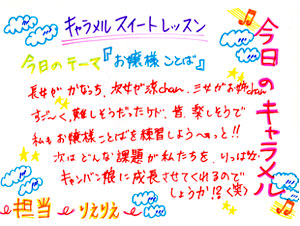 キャラメル スイート レッスン
今日のテーマ『お嬢様ことば』
長女が かなっち、次女が涼chan、三女がお姉chan
すご〜く、難しそうだったケド、皆、楽しそうで
私も お嬢様ことばを練習しようへっと!!
次は どんな課題が 私たちを、りっぱな
キャンパン娘に成長させてくれるので
しょうか!?<笑>
担当 りえりえ
今日のキャラメル